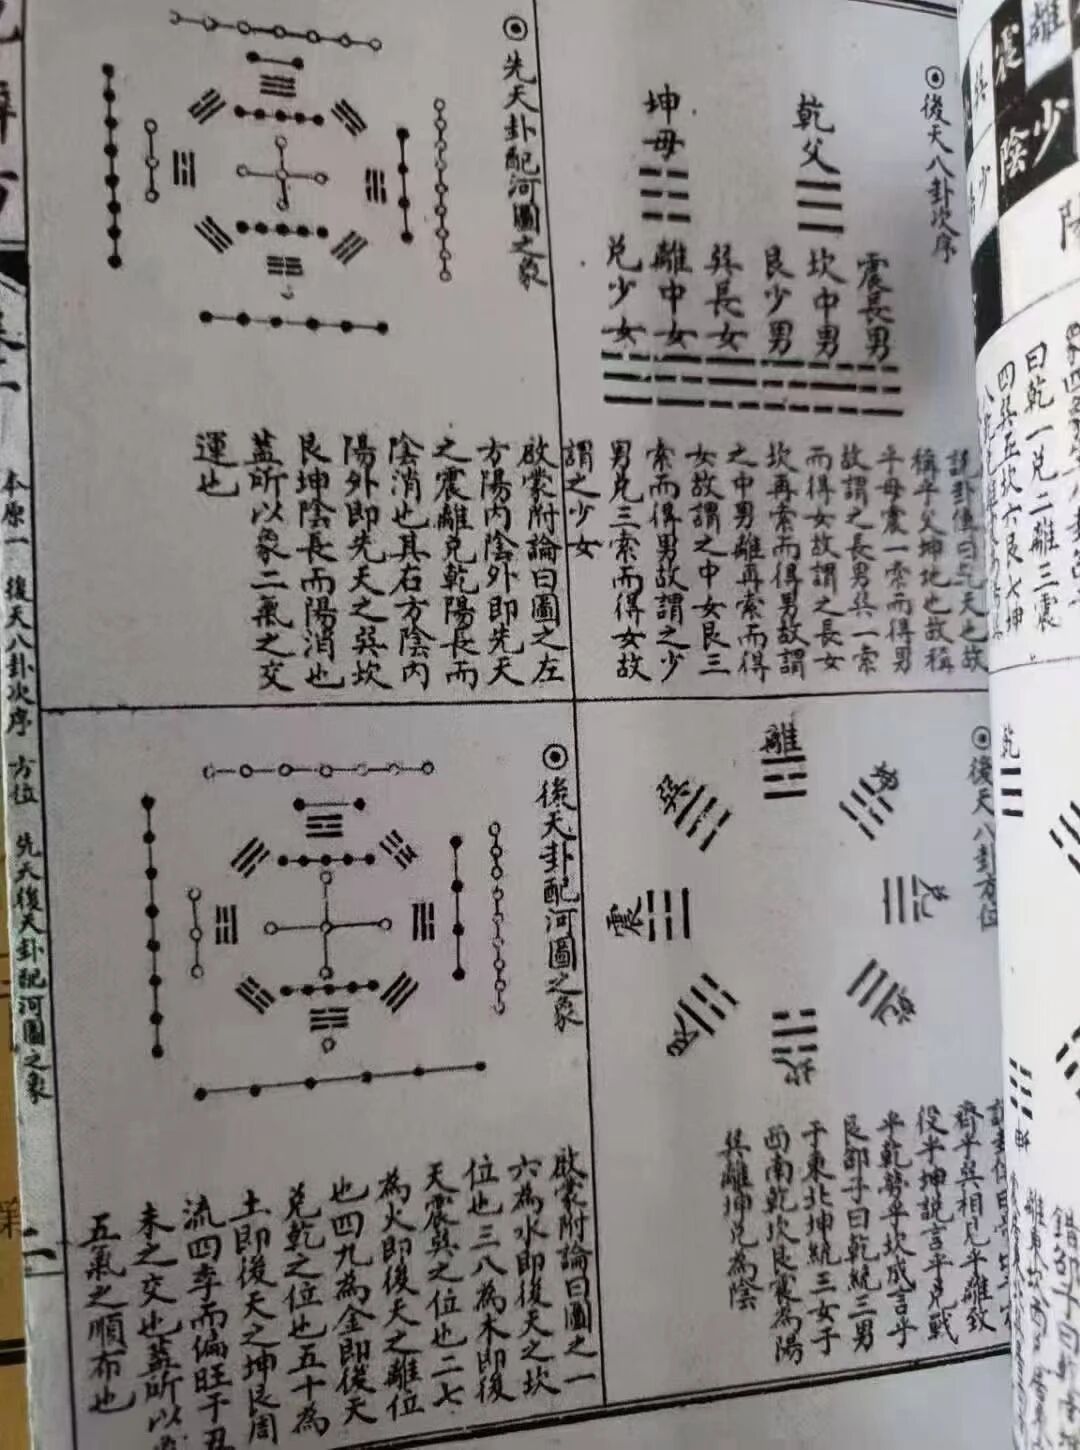 後天八卦次序
乾父
坤母
震長男
坎中男
艮少男
巽長女
離中女
兌少女
說卦傳曰乾天也故
稱乎父坤地也故稱
乎母震一索而得男
故謂之長男巽一索
而得女故謂之長女
坎再索而得男故謂
之中男離再索而得
女故謂之中女艮三
索而得男故謂之少
男兌三索而得女故
謂之少女
先天卦配河圖之象
啟蒙附論曰圖之左
方陽內陰外即先天
之震離兌乾陽長而
陰消也其右方陰內
陽外即先天之巽坎
艮坤陰長而陽消也
蓋所以象二氣之交
運也
後天八卦方位
離
坤
兌
乾
坎
艮
震
巽
齊乎巽相見乎離致
役乎坤說言乎兌戰
乎乾勞乎坎成言乎
艮邵子曰乾統三男
于東北坤統三女于
西南乾坎艮震為陽
巽離坤兌為陰
後天卦配河圖之象
啟蒙附論曰圖之一
六為水即後天之坎
位也三八為木即後
天震巽之位也二七
為火即後天之離位
也四九為金即後天
兌乾之位也五十為
土即後天之坤艮周
流四季而偏旺于丑
未之交也蓋所以
五氣之順布也
本原一 後天八卦次序 方位 先天後天卦配河圖之象
二
震
離
陰
少
曰乾一兌二離三震
四巽五坎六艮七坤
乾